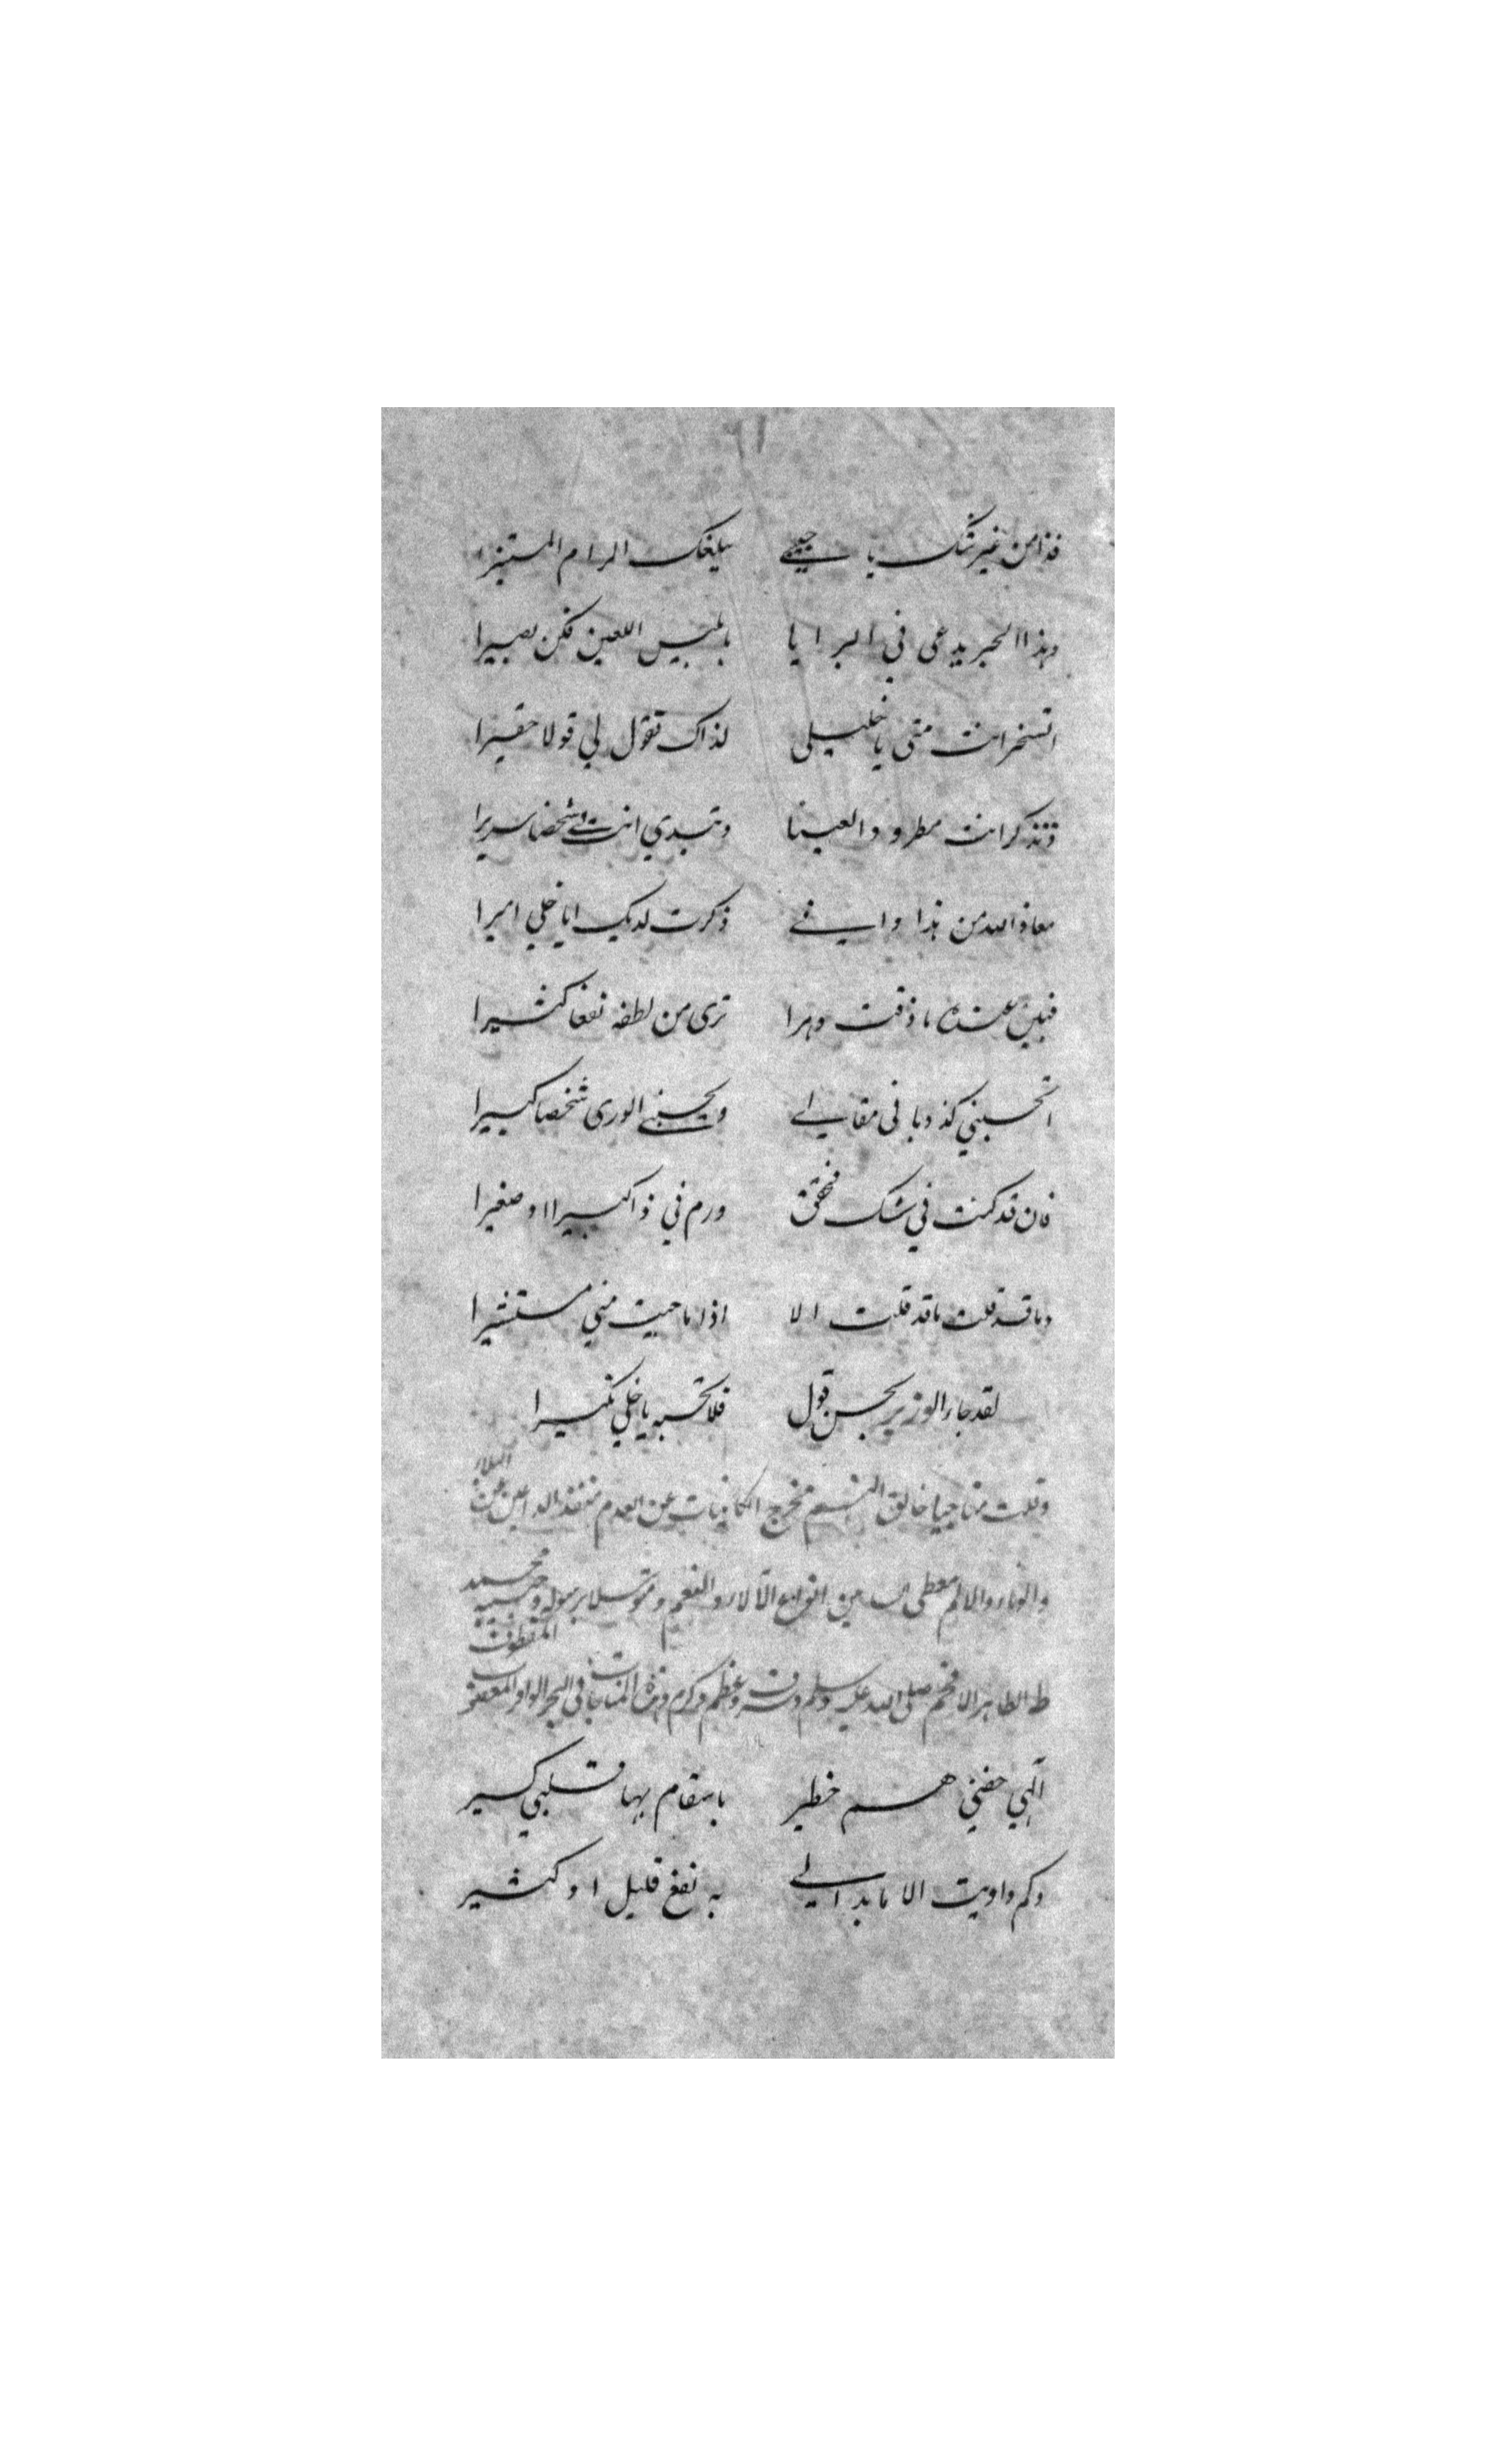 ٦١
فذا من غير شك يا حبيبي يبلغك المرام المستنيرا
وهذا الحبر يدعى في البرايا بابليس اللعين فكن بصيرا
اتسخر انت مني يا خليلي لذاك تقول لي قولا حقيرا
وتذكر انت مطرودا لعينا وتبدي انت لي شخصا سريرا
معاذ الله من هذا واني ذكرت لديك ايا خلي اميرا
فبين عنده ما ذقت دهرا ترى من لطفه نفعا كثيرا
اتحسبني كذوبا في مقالي ويحسبني الورى شخصا كبيرا
فان قد كنت في شك فحقق ورم في ذا كبيرا او صغيرا
وما قد قلت ما قد قلت الا اذا ما جيت مني مستشيرا
لقد جاء الوزير بحسن قول فلا تحسبه يا خلي نكيرا
وقلت مناجيا خالق النسم مخرج الكاينات عن العدم منقذ الداعين عن البلاء
والوباء والالم معطي السايلين انواع الآلاء والنعم ومتوسلا برسوله وحبيبه محمد
ط الطاهر الافخم صلى الله عليه وسلم وشرف وعظم وكرم وهذه المناجات في البحر الوافر المعصوب المقطوف
آلهي حفني هم خطير باسقام بها قلبي كسير
وكم داويت الا ما بدا لي به نفع قليل او كثير